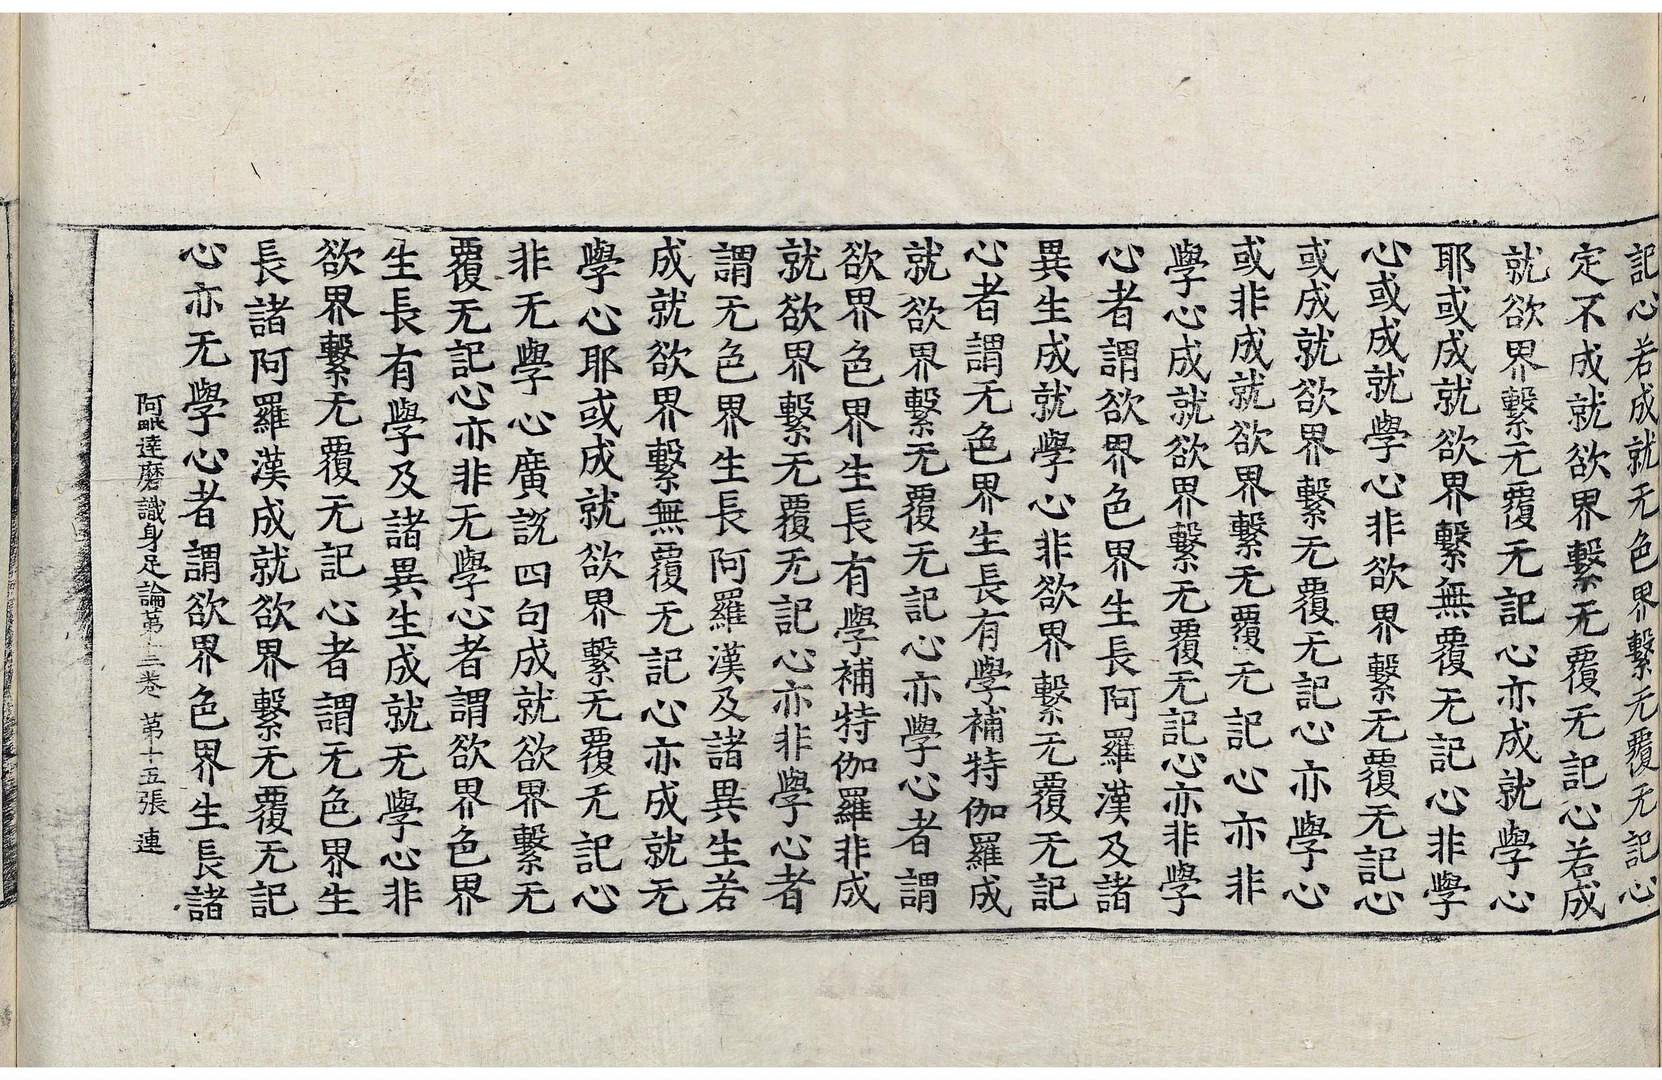 記心若成就无色界繫无覆无記心
定不成就欲界繫无覆无記心若成
就欲界繫无覆无記心亦成就學心
耶或成就欲界繫無覆无記心非學
心或成就學心非欲界繫无覆无記心
或成就欲界繫无覆无記心亦學心
或非成就欲界繫无覆无記心亦非
學心成就欲界繫无覆无記心亦非學
心者謂欲界色界生長阿羅漢及諸
異生成就學心非欲界繫无覆无記
心者謂无色界生長有學補特伽羅成
就欲界繫无覆无記心亦學心者謂
欲界色界生長有學補特伽羅非成
就欲界繫无覆无記心亦非學心者
謂无色界生長阿羅漢及諸異生若
成就欲界繫無覆无記心亦成就无
學心耶或成就欲界繫无覆无記心
非无學心廣說四句成就欲界繫无
覆无記心亦非无學心者謂欲界色界
生長有學及諸異生成就无學心非
欲界繫无覆无記心者謂无色界生
長諸阿羅漢成就欲界繫无覆无記
心亦无學心者謂欲界色界生長諸
阿毗達磨識身足論第十三卷 第十五張 連